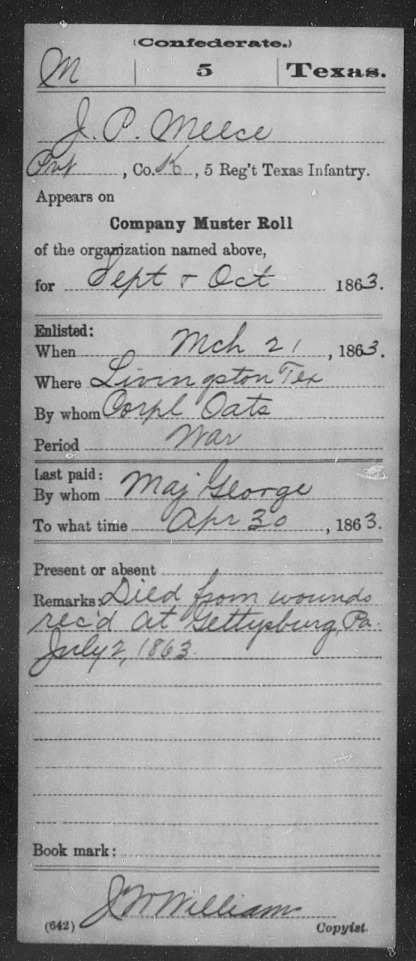 (Confederate.)
M | 5 | Texas.
J. P. Meece
Pvt, Co. K, 5 Reg't Texas Infantry.
Appears on
Company Muster Roll
of the organization named above,
for Sept & Oct 1863.
Enlisted:
When Mch 21, 1863.
Where Livingston Tex
By whom Corpl Oats
Period War
Last paid:
By whom Maj George
To what time Apr 30, 1863.
Present or absent
Remarks: Died from wounds
rec'd at Gettysburg, Pa.
July 2, 1863.
Book mark:
J W William
(642) Copyist.